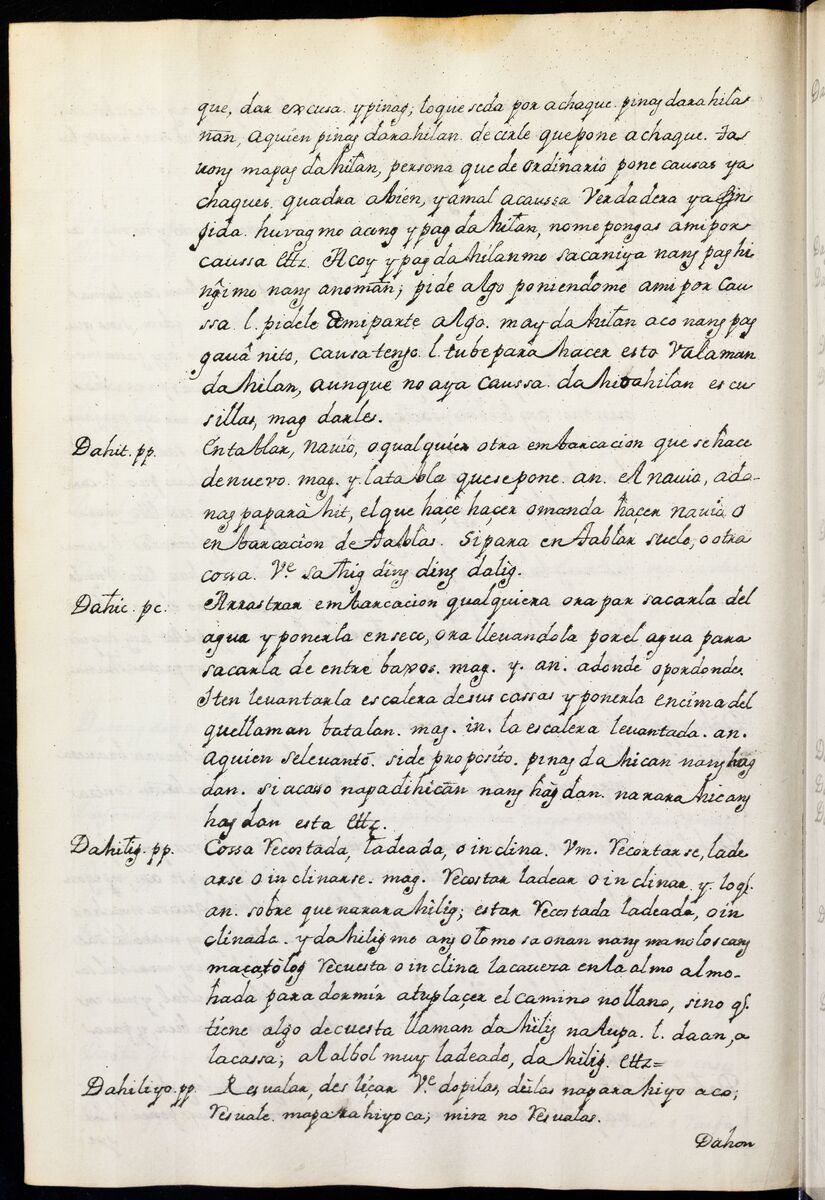 que, dar excusa. ypinag; loque seda por achaque. pinag darahila
nan, aquien pinag darahilan. decirle quepone achaque. Ta
uong mapag dahilan, persona que de ordinario pone causas ya
chaques. quadra abien, yamal acaussa Verdadera ya fin
gida. huvag mo acong ypag dahilan, nome pongas ami por
caussa etta. Acoy ypag dahilanmo sacaniya nang pag hi
ngimo nang anoman; pide algo poniendome ami por cau
ssa. l. pidele demiparte algo. may dahilan aco nang pag
gauâ nito, causa tengo. l. tube para hacer esto Valaman
dahilan, aunque no aya caussa. dahidahilan escu
sillas, mag darles.
Dahit. pp. Entablar, nauio, o qualquier otra embarcacion que se hace
denuevo. mag. y. la tabla quesepone. an. el nauio, ado.
nag papara hit, el que haçe haçer o manda haçer nauio o
enbarcacion de tablas. Si para entablar suelo, o otra
cossa. Ve. sathig ding ding dalig.
Dahic. pc. Arrastrar embarcacion qualquiera ora par sacarla del
agua y ponerla en seco, ora lleuandola por el agua para
sacarla de entre baxos. mag. y. an. adonde opordonde.
Iten levantarla escalera desus cassas y ponerla encimadel
quellaman batalan. mag. in. la escalera levantada. an.
aquien selevantô. side proposito. pinag dahican nang hag
dan. si acaso napadihican nang hag dan. narara hic ang
hag dan esta etta.
Dahilig. pp. Cossa recostada, ladeada, o inclina. Vm. recortarse, lade
arse o inclinarse. mag. recostar ladear o inclinar. y. loq.
an. sobre que nararahilig; estar recostada ladeada, o in
clinada. ydahiligmo ang olomo saonan nang manoloscang
macatolog recuesta o inclina lacaveza en la almo almo-
hada para dormir atuplaçer el camino no llano, sino q.
tiene algo decuesta llaman dahilig nalupa. l. daan, a
lacassa; al albol muy ladeado, dahilig. etta=
Dahiliyo. pp. Resualar, desliçar Ve. dopilas, dulas naparahiyo aco;
resuale. maparahiyoca; mira no resualas.
Dahon